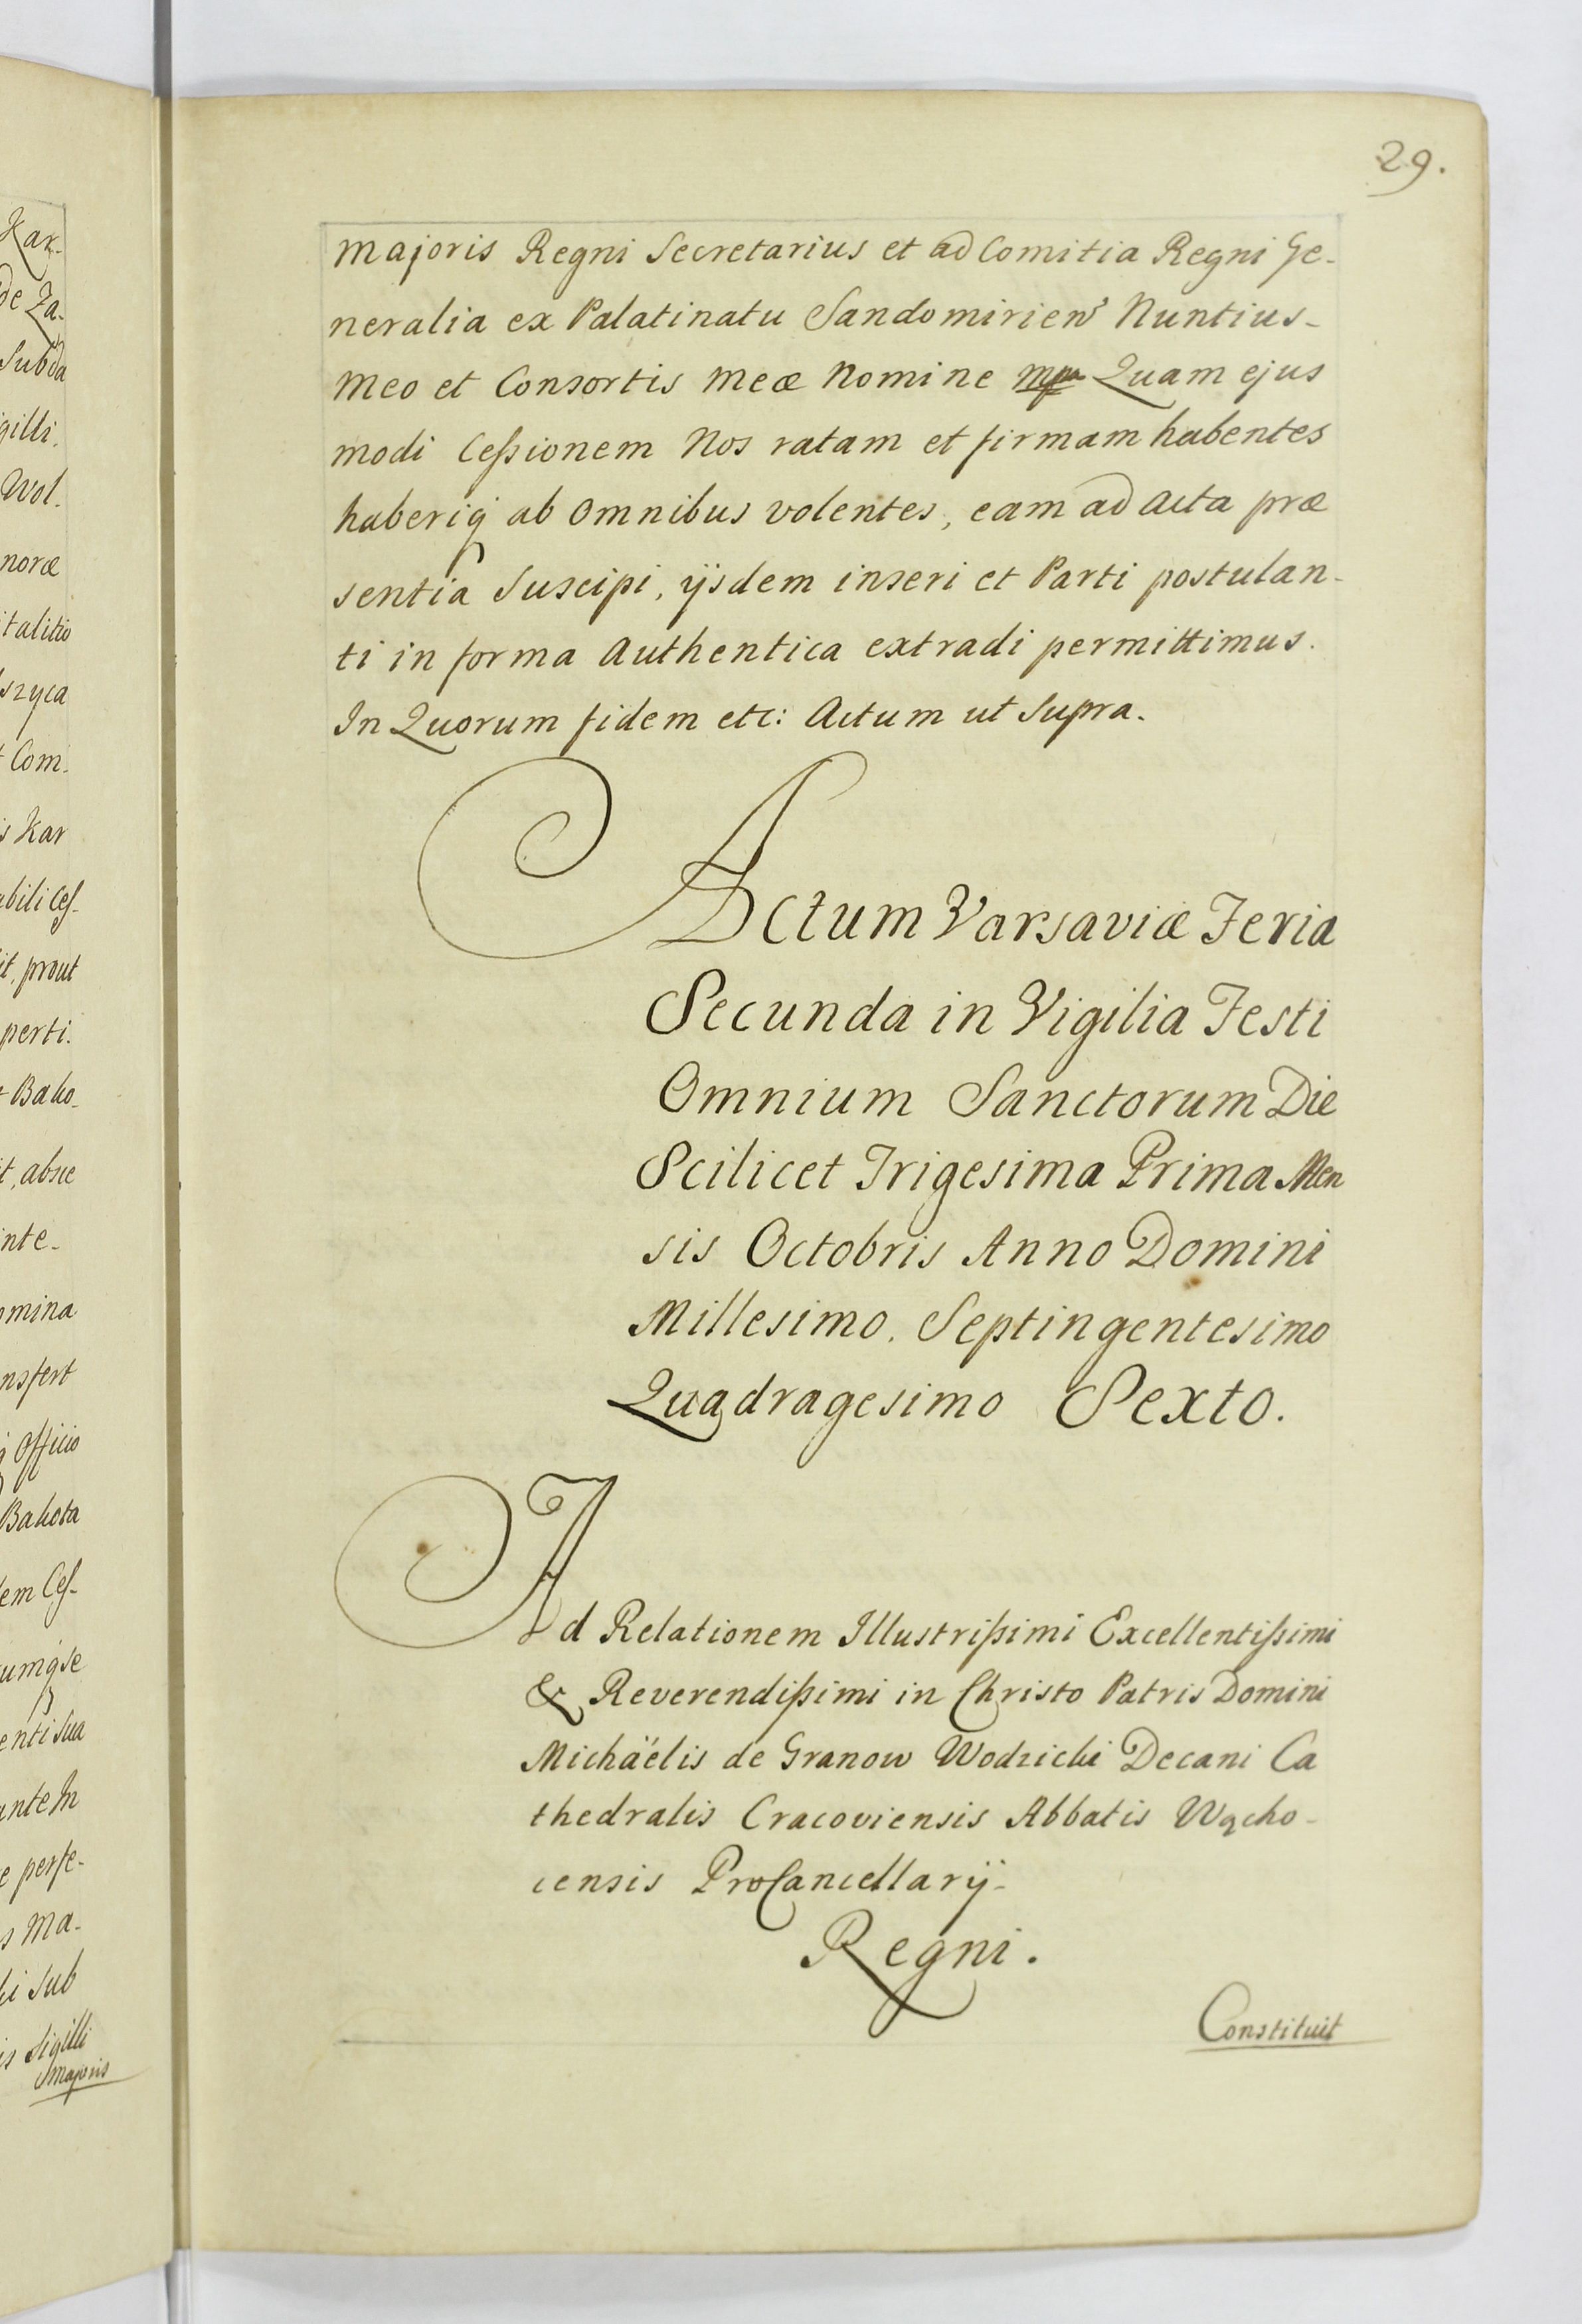 Kar-
de Za-
Subda
gilli.
Wol.
noræ
italitio
szyca
t Com.
s Kar
abili Ceſ-
it, prout
perti.
t Bako-
t, absce
inte-
omina
nsfert
q Officio
Bakota
dem Ceſ-
cumq se
enti sua
ante In
e perfe-
s Ma-
ki Sub
is Sigilli
Majoris
29.
Majoris Regni Secretarius et ad Comitia Regni Ge-
neralia ex Palatinatu Sandomirien Nuntius-
Meo et Consortis Meæ Nomine mpa Quam ejus
modi Ceſsionem Nos ratam et firmam habentes
haberiq ab Omnibus volentes, eam ad Acta præ
sentia Suscipi, ijsdem inseri et Parti postulan-
ti in forma Authentica extradi permittimus.
In Quorum fidem etc: Actum ut Supra.
Actum Varsaviæ Feria
Secunda in Vigilia Festi
Omnium Sanctorum Die
Scilicet Trigesima Prima Men
sis Octobris Anno Domini
Millesimo. Septingentesimo
Quadragesimo Sexto.
Ad Relationem Illustriſsimi Excellentiſsimi
& Reverendiſsimi in Christo Patris Domini
Michäelis de Granow Wodzicki Decani Ca
thedralis Cracoviensis Abbatis Wącho-
censis ProCancellarij-
Regni.
Constituit